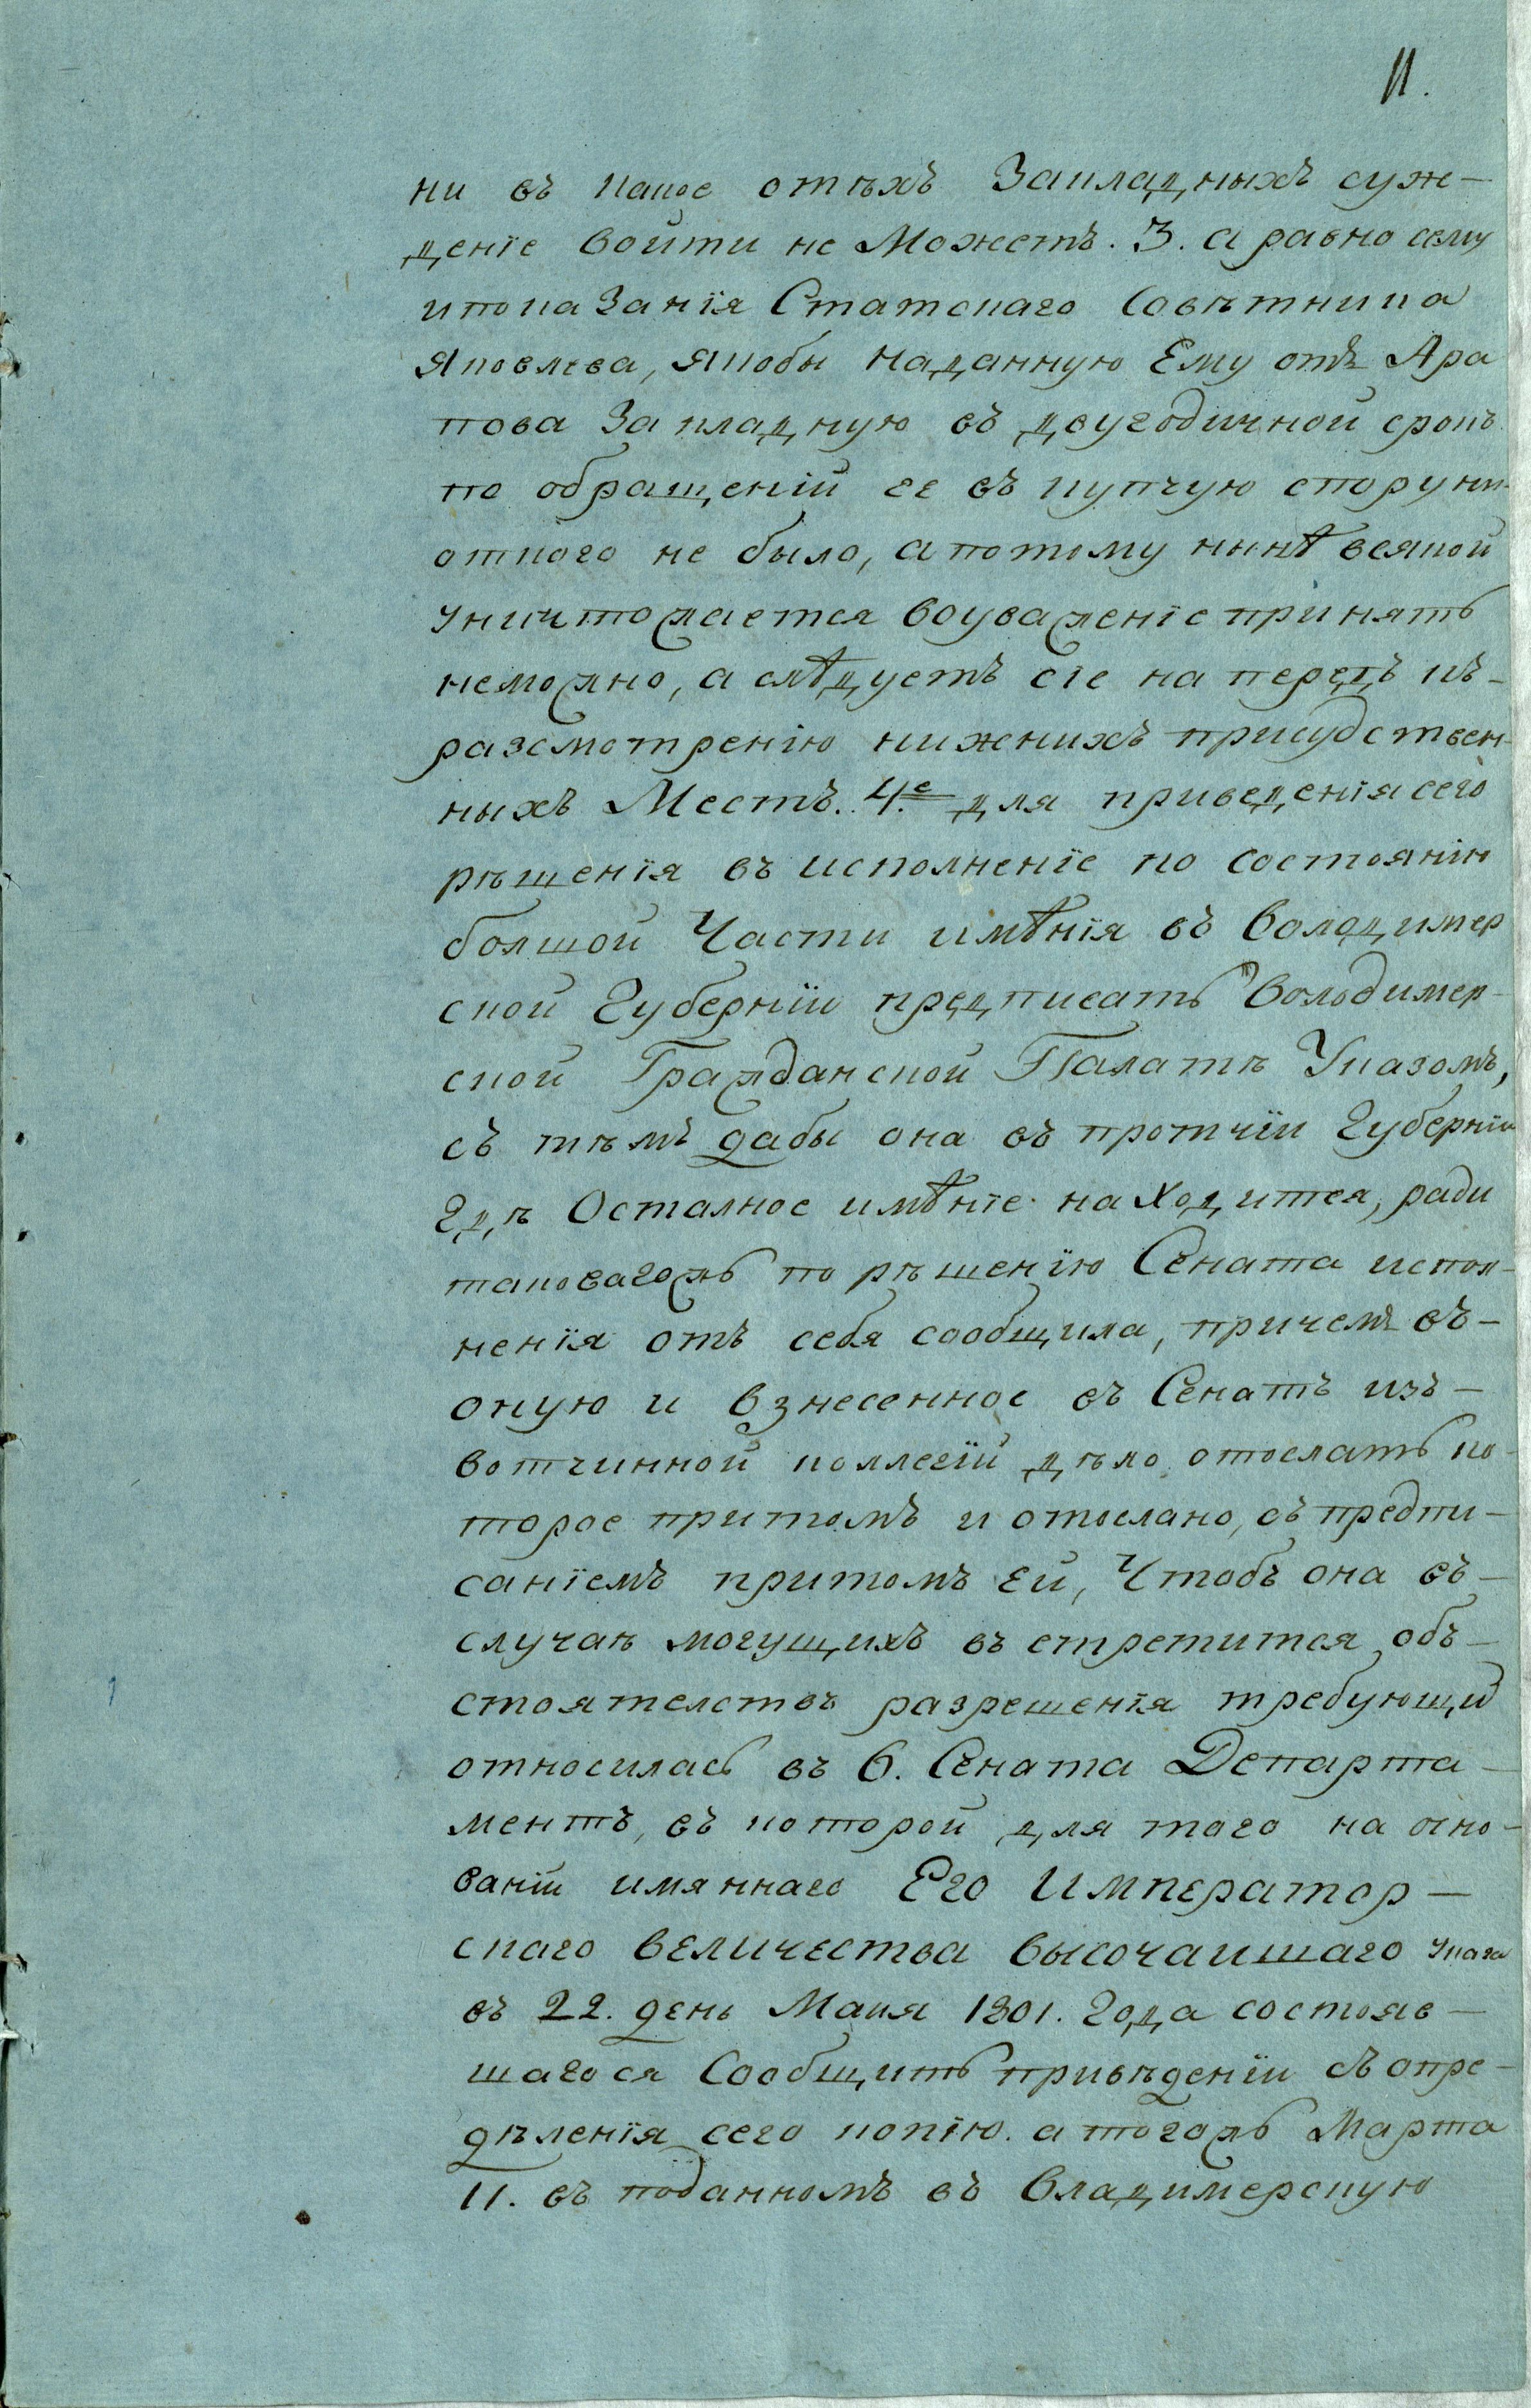 11.
ни въ какое отѣхъ Закладныхъ суж–
денїе войти не Можетъ. 3. а равно сему
ипоказанїя Статскаго Совѣтника
Яковлева, якобы наданную Ему отъ Ара
пова Закладную въ двугодичной срокъ
по обращенїй ее въ купчую спору ни–
откого не было, апотому нынѣ всякой
уничтожается воуваженїе принять
неможно, а слѣдуетъ сїе на передъ къ–
разсмотренїю нижнихъ присудствен–
ныхъ Местъ. 4.е для приведенїя сего
рѣшенїя въ исполненїе по состоянїю
болшой Части имѣнїя въ Володимер
ской Губернїи предписать Вольдимер–
ской Гражданской Палатѣ Указомъ,
съ тѣмъ дабы она въ протчїи Губернїи
гдѣ Осталное имѣнїе находится, ради
таковагожъ по рѣшенїю Сената испол–
ненїя отъ себя сообщила, причемъ въ–
оную и взнесенное въ Сенатъ изъ–
вотчинной коллегїй дѣло отослать ко–
торое притомъ и отослано, съ предпи–
санїемъ притомъ ей, Чтобъ она въ–
случаѣ могущихъ въстретится объ–
стоятелствъ разрешенїя требующий
относилась въ 6. Сената Департа–
ментъ, въ которой для того на осно–
ванїи имяннаго Его Император–
скаго Величества высочаишаго указа
въ 22. день Маия 1801. Года состояв–
шагося Сообщить привѣденїи съ опре–
дѣленїя сего копїю. а тогожъ Марта
11. въ поданномъ въ Владимерскую